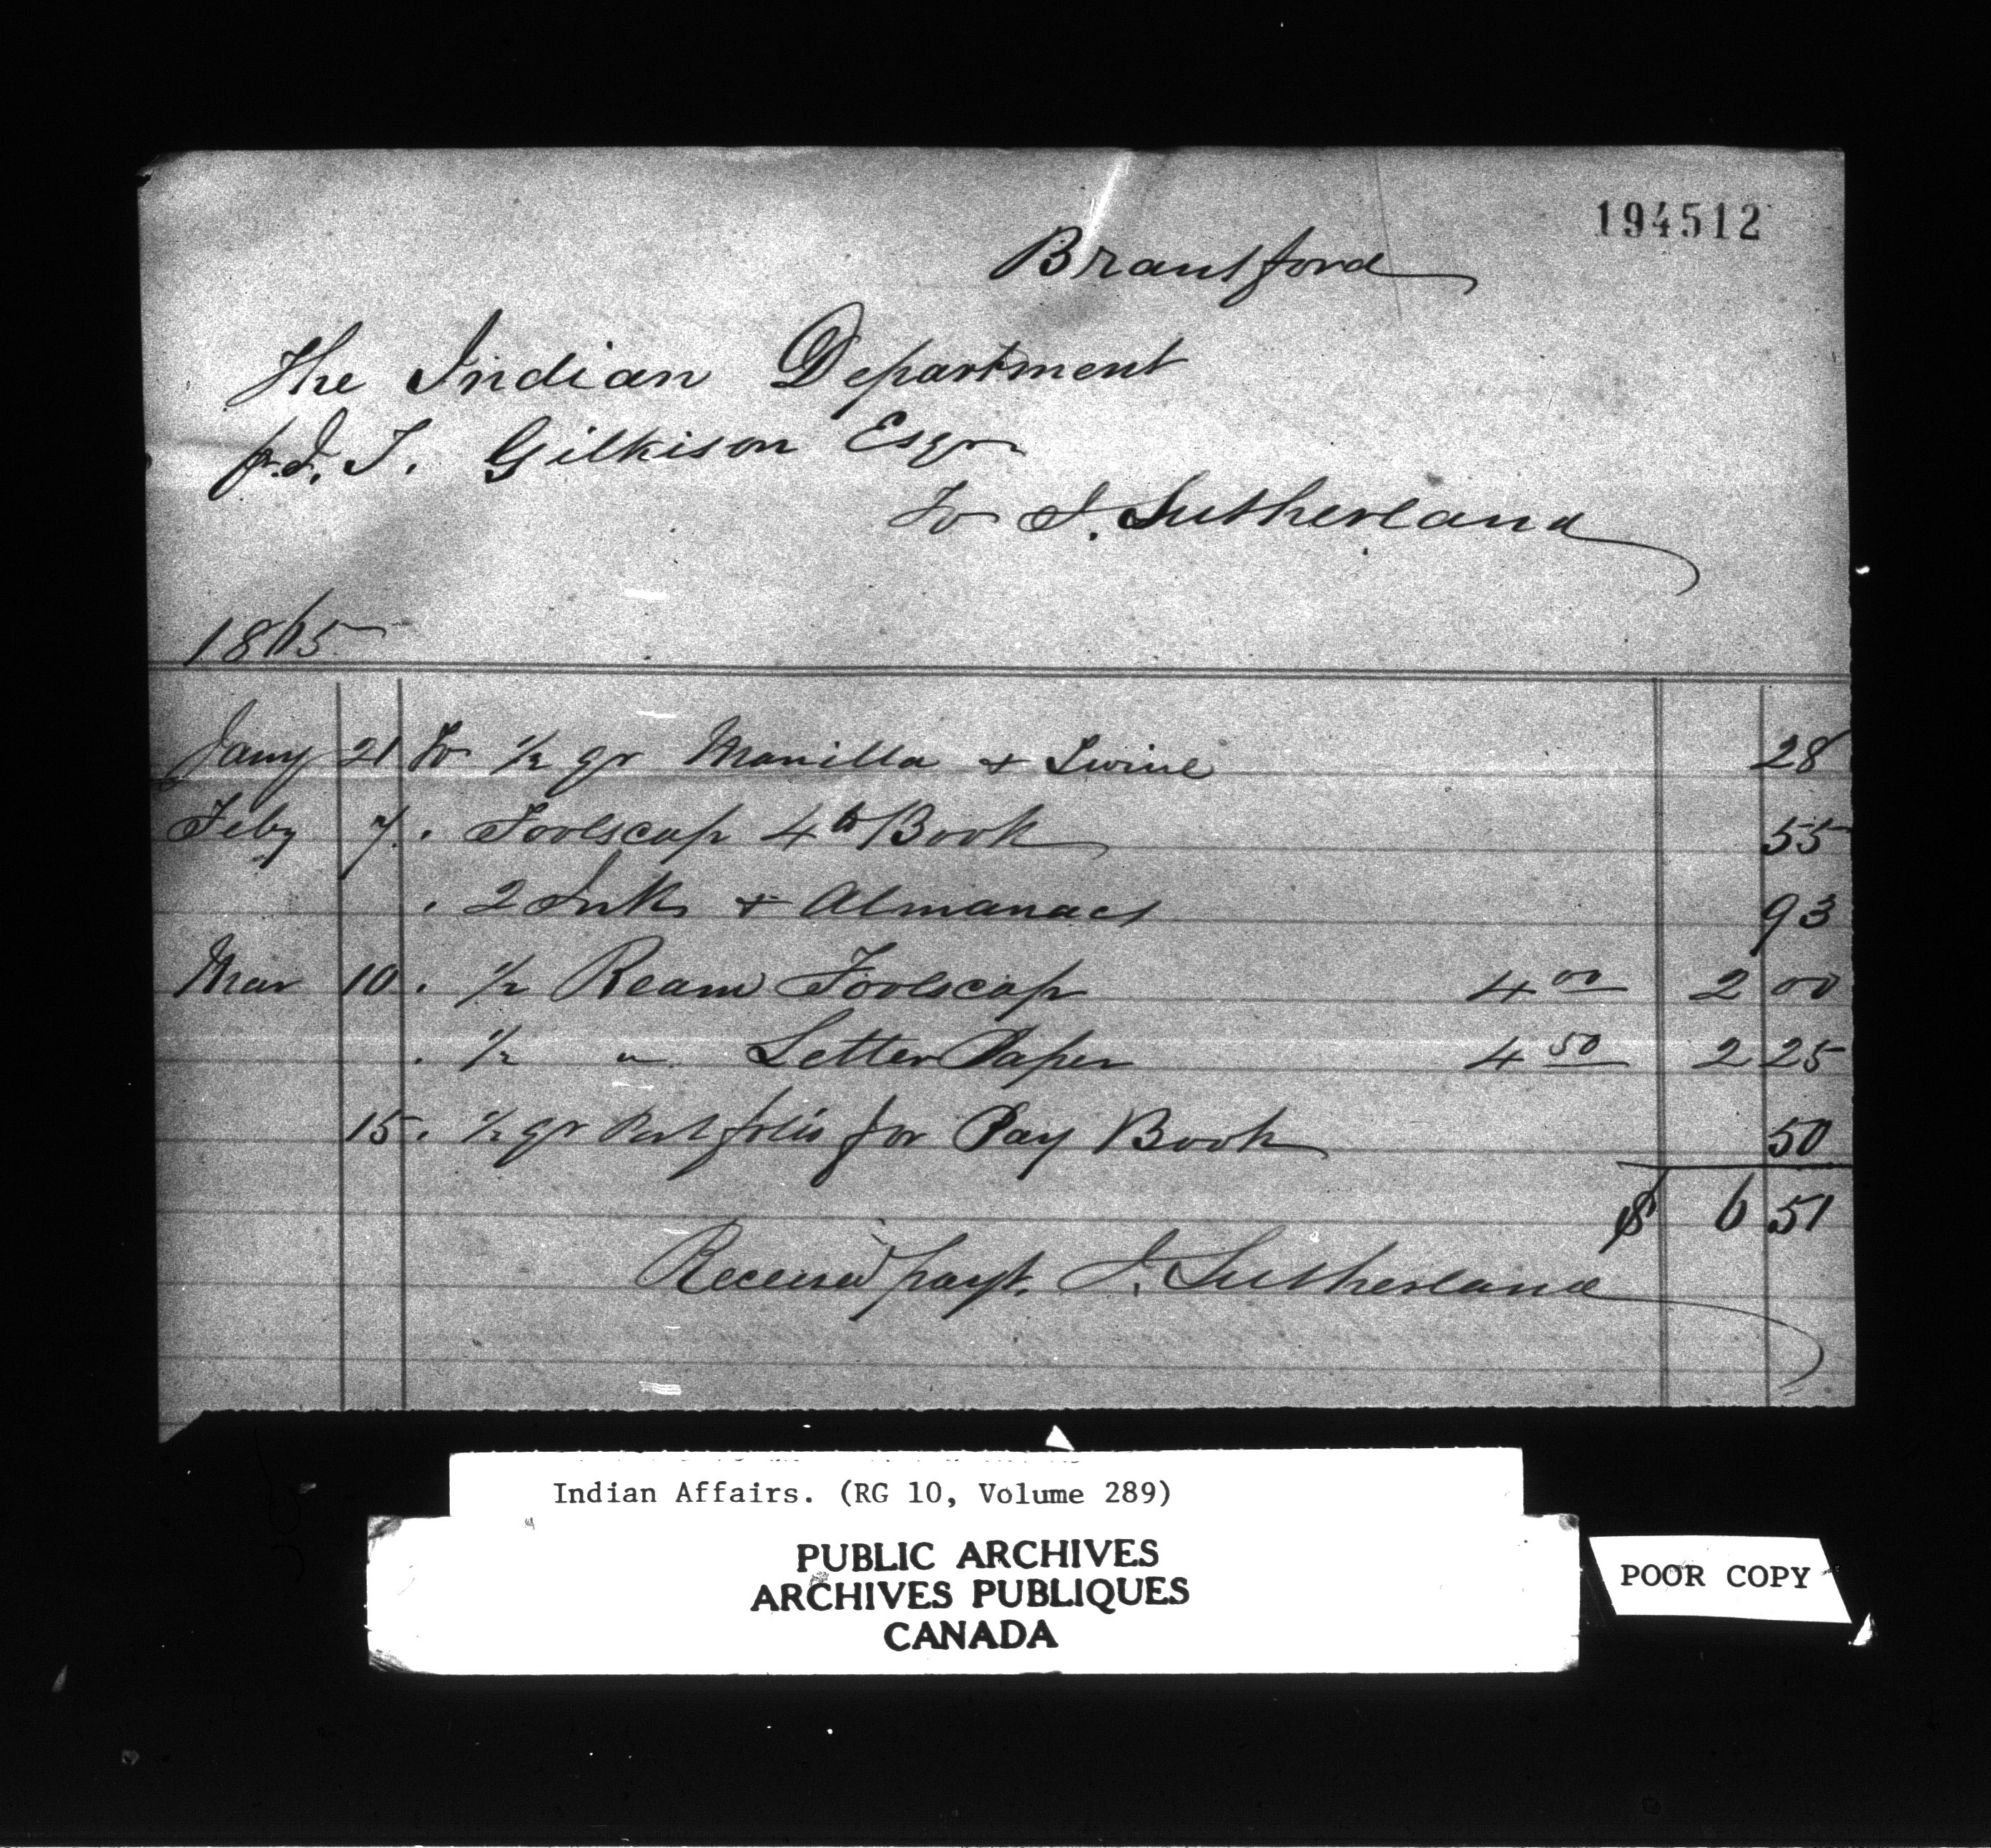 194512
Brantford
The Indian Department
pr. J. T. Gilkison Esqr
To J. Sutherland
1865
Jany 21 To ½ qr Manilla + Twine 28
Feby 7 . Foolscap 4to Book 55
. 2 Inks + Almanacs 93
Mar 10 . ½ Ream Foolscap 4 00 2 00
. ½ " Letter Paper 4 50 2 25
15 . ½ qr folio for Pay Book 50
$ 6 51
Received payt. J. Sutherland
Indian Affairs. (RG 10, Volume 289)
PUBLIC ARCHIVES
ARCHIVES PUBLIQUES
CANADA
POOR COPY